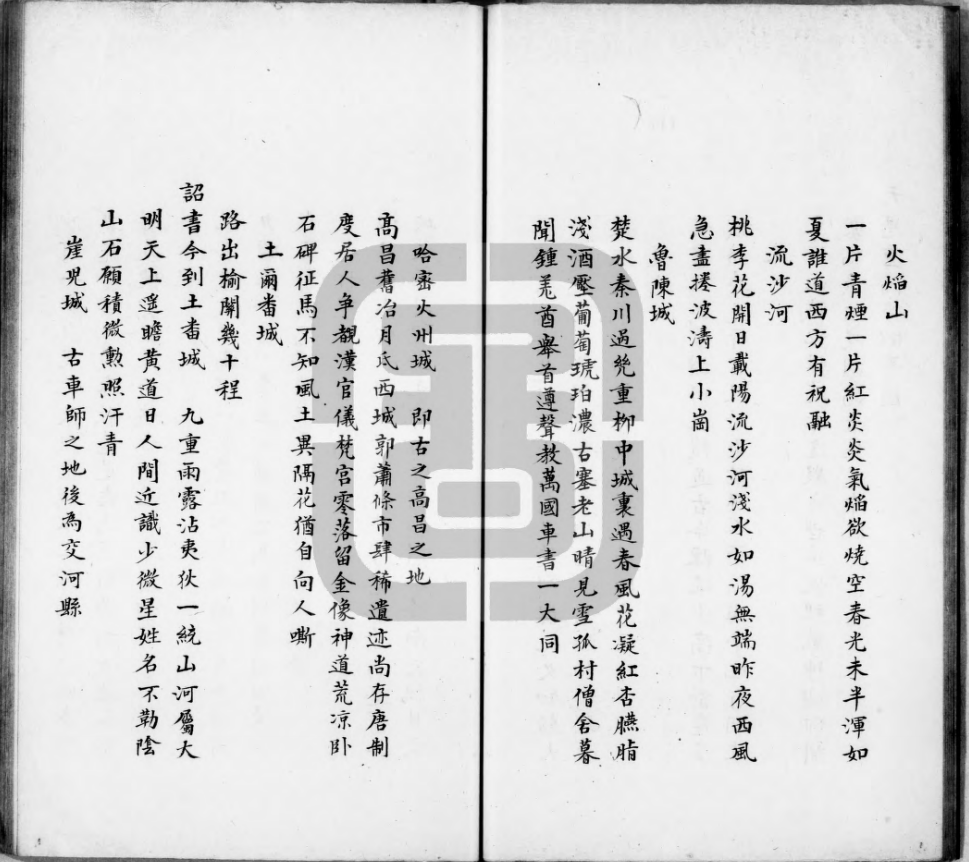 火焰山
一片青煙一片紅炎炎氣焰欲燒空春光未半渾如
夏誰道西方有祝融
流沙河
桃李花開日載陽流沙河淺水如湯無端昨夜西風
急盡捲波濤上小崗
魯陳城
楚水秦川過幾重柳中城裏遇春風花凝紅杏臙脂
淺酒壓葡萄琥珀濃古塞老山晴見雪孤村僧舍暮
聞鍾羌酋舉首遵聲教萬國車書一大同
哈密火州城 即古之高昌之地
髙昌舊冶月氏西城郭蕭條市肆稀遺迹尚存唐制
度居人爭覩漢官儀梵宮零落留金像神道荒凉卧
石碑征馬不知風土異隔花猶自向人嘶
土爾番城
路出榆關幾十程
詔書今到土番城 九重雨露沾夷狄一統山河屬大
明天上遥瞻黄道日人間近識少微星姓名不勒陰
山石願積微勲照汗青
崖兒城 古車師之地後為交河縣